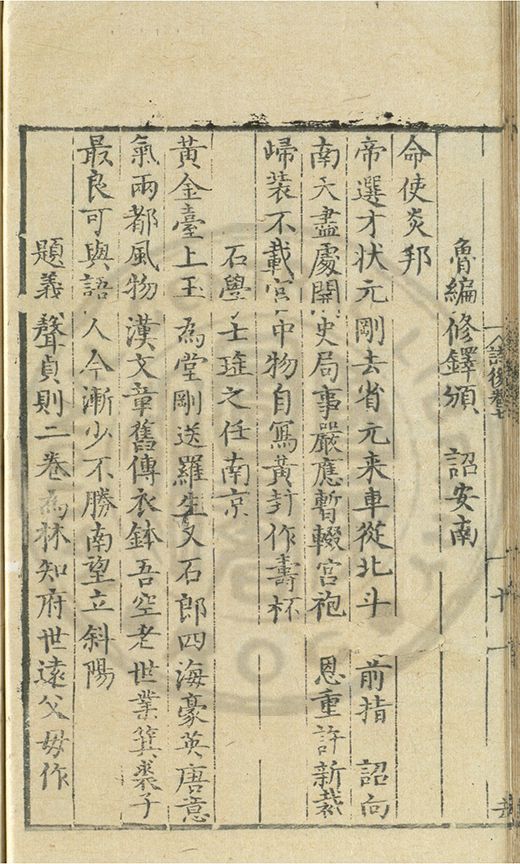 魯編修鐸頒 詔安南
命使炎邦
帝選才状元剛去省元来車從北斗 前指 詔向
南天盡處開史局事嚴應暫輟宮袍 恩重許新裁
㱕装不載官中物自寫黄封作壽杯
石學士珤之任南京
黃金臺上玉為堂剛送羅生又石郎四海豪英唐意
氣兩都風物漢文章舊傳衣鉢吾空老世業箕裘子
最良可與語人今漸少不勝南望立斜陽
題義聲貞則二卷為林知府世遠父母作
詩後卷七
十